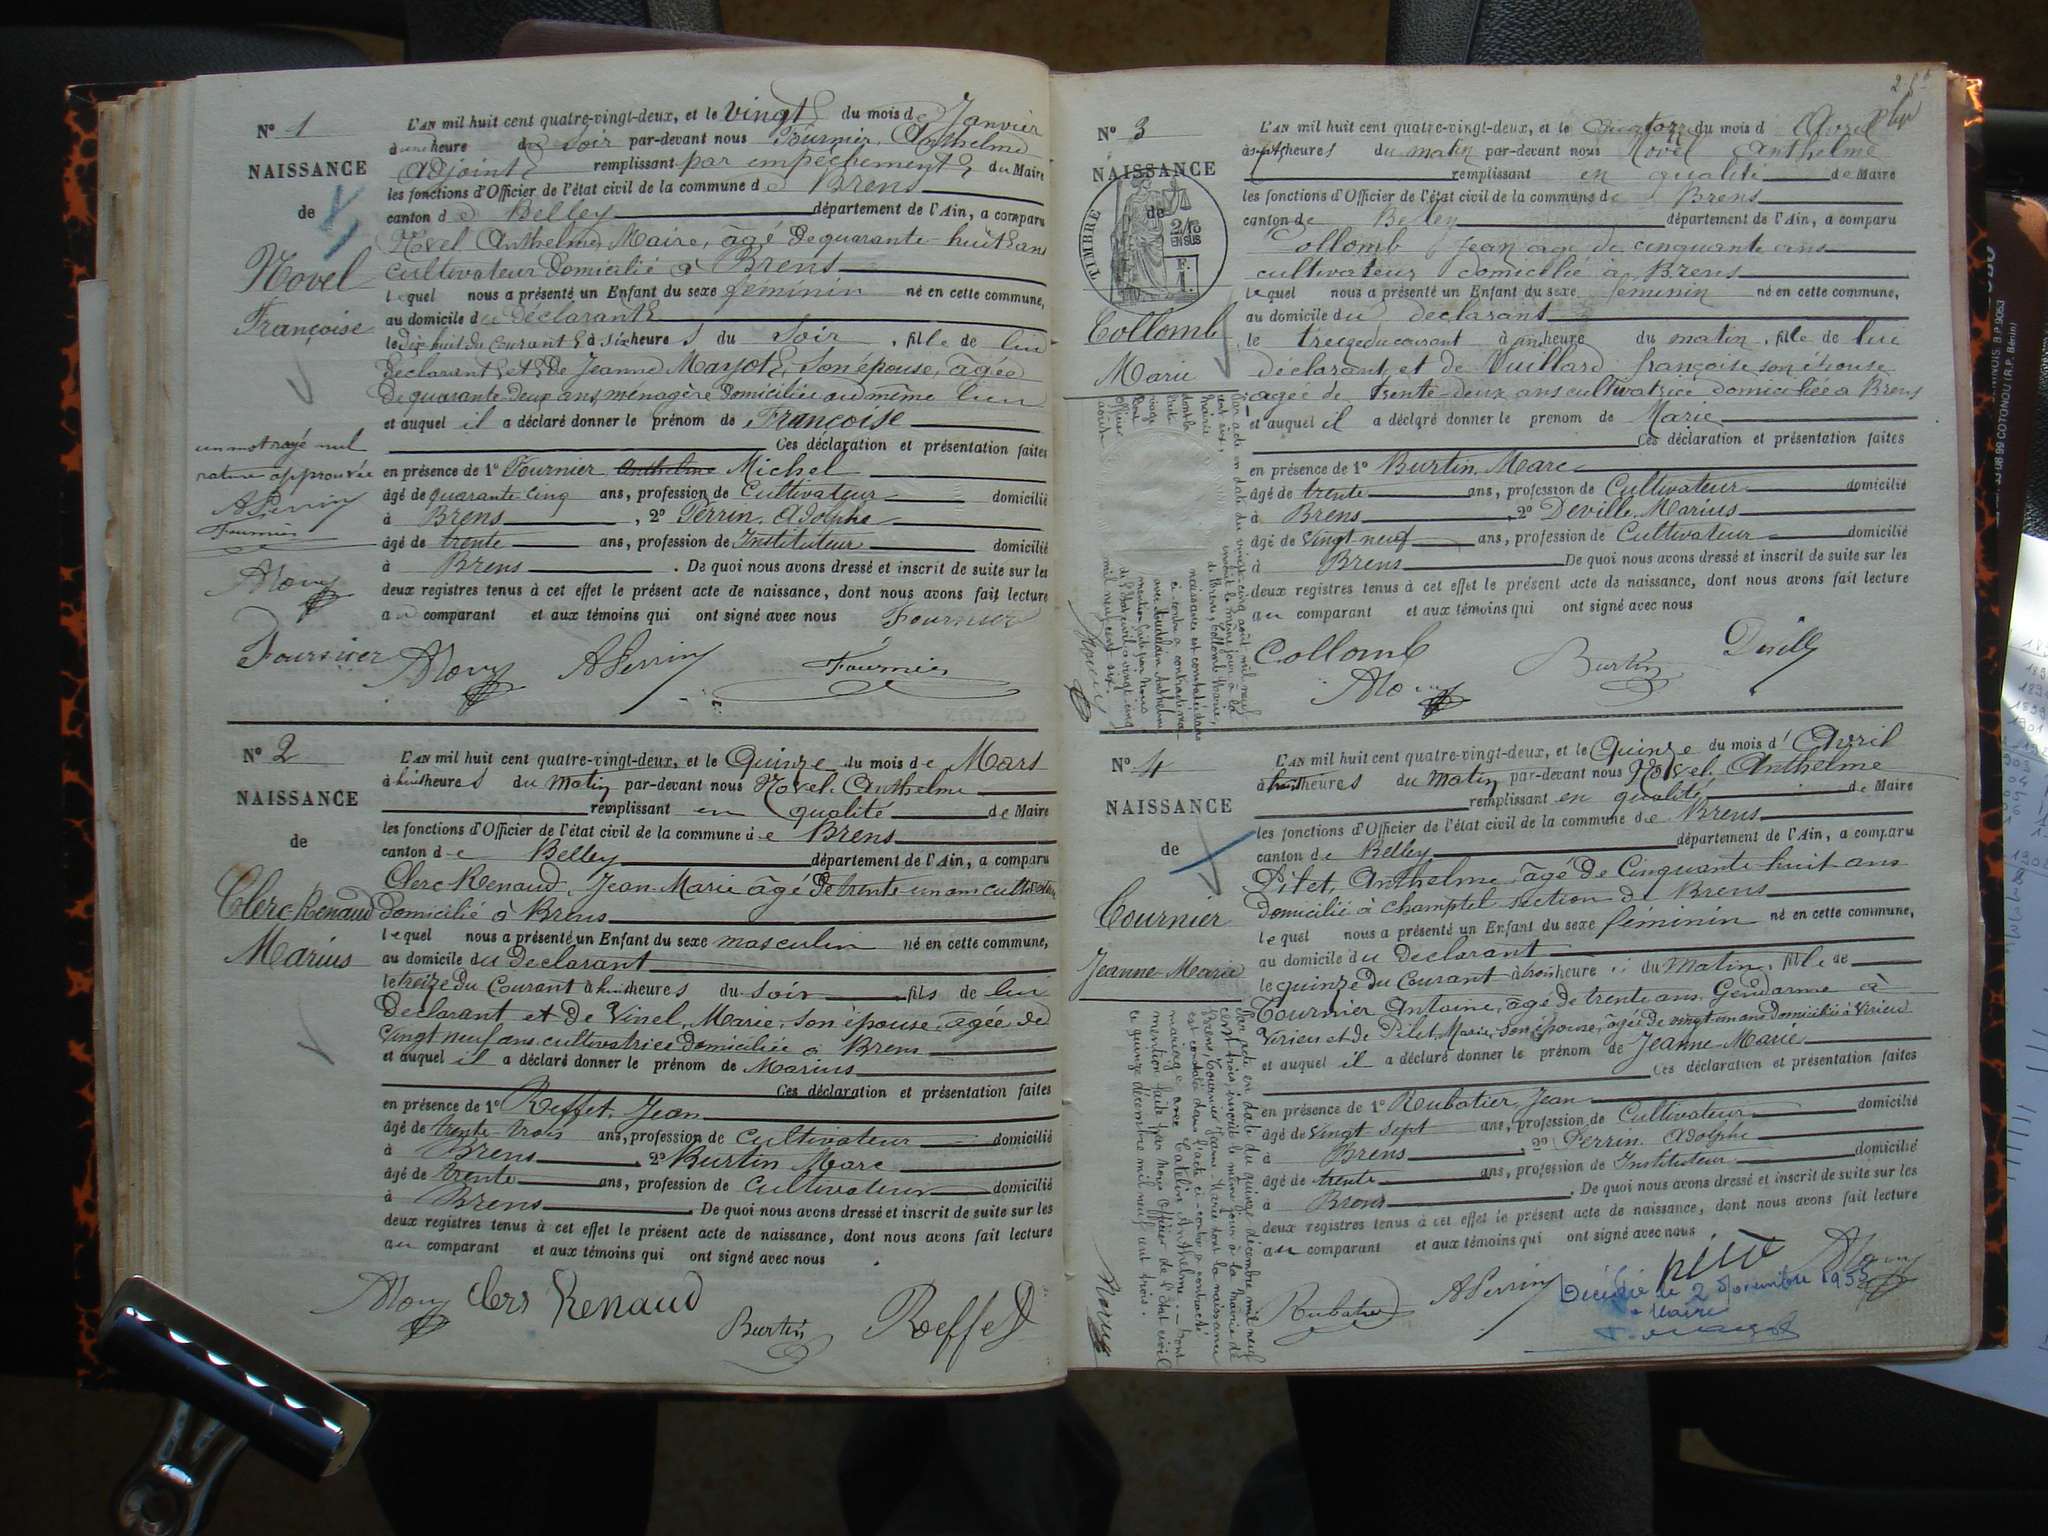 Nº 1
NAISSANCE
de
Novel
Françoise
un mot rayé nul
approuvée
APerrin
Fournier
ANovel
L'AN mil huit cent quatre-vingt-deux, et le vingt du mois de Janvier
à une heure du soir par-devant nous Fournier Anthelme
Adjoint remplissant par empêchement du Maire
les fonctions d'Officier de l'état civil de la commune de Brens
canton de Belley département de l'Ain, a comparu
Novel Anthelme Maire, âgé de quarante-huit ans
cultivateur domicilié à Brens
lequel nous a présenté un Enfant du sexe féminin né en cette commune,
au domicile du déclarant
le dix huit du courant à six heures du soir, fille de lui
déclarant et de Jeanne Marjot, son épouse, âgée
de quarante deux ans ménagère domiciliée au même lieu
et auquel il a déclaré donner le prénom de Françoise
Ces déclaration et présentation faites
en présence de 1º Fournier Anthelme Michel
âgé de quarante cinq ans, profession de Cultivateur domicilié
à Brens, 2º Perrin, Adolphe
âgé de trente ans, profession de Instituteur domicilié
à Brens. De quoi nous avons dressé et inscrit de suite sur les
deux registres tenus à cet effet le présent acte de naissance, dont nous avons fait lecture
au comparant et aux témoins qui ont signé avec nous Fournier
Fournier ANovel APerrin Fournier
Nº 2
NAISSANCE
de
Clerc-Renaud
Marius
L'AN mil huit cent quatre-vingt-deux, et le Quinze du mois de Mars
à huit heures du matin par-devant nous Novel Anthelme
remplissant en qualité de Maire
les fonctions d'Officier de l'état civil de la commune de Brens
canton de Belley département de l'Ain, a comparu
Clerc-Renaud, Jean-Marie âgé de trente-un ans cultivateur
domicilié à Brens
lequel nous a présenté un Enfant du sexe masculin né en cette commune,
au domicile du déclarant
le treize du courant à huit heures du soir fils de lui
déclarant et de Vinel, Marie, son épouse, âgée de
vingt neuf ans cultivatrice domiciliée à Brens
et auquel il a déclaré donner le prénom de Marius
Ces déclaration et présentation faites
en présence de 1º Reffet, Jean
âgé de trente-trois ans, profession de cultivateur domicilié
à Brens, 2º Burtin Marc
âgé de trente ans, profession de cultivateur domicilié
à Brens. De quoi nous avons dressé et inscrit de suite sur les
deux registres tenus à cet effet le présent acte de naissance, dont nous avons fait lecture
au comparant et aux témoins qui ont signé avec nous
ANovel Clerc Renaud Burtin Roeffet
Nº 3
NAISSANCE
de
TIMBRE
2/10
EN SUS
F.
1.
Collomb
Marie
L'AN mil huit cent quatre-vingt-deux, et le quatorze du mois d'Avril
à sept heures du matin par-devant nous Novel Anthelme
remplissant en qualité de Maire
les fonctions d'Officier de l'état civil de la commune de Brens
canton de Belley département de l'Ain, a comparu
Collomb Jean âgé de cinquante ans
cultivateur domicilié à Brens
lequel nous a présenté un Enfant du sexe féminin né en cette commune,
au domicile du déclarant
le treize du courant à une heure du matin, fille de lui
déclarant et de Vuillard françoise son épouse
agée de trente-deux ans cultivatrice domiciliée à Brens
et auquel il a déclaré donner le prénom de Marie
Ces déclaration et présentation faites
en présence de 1º Burtin, Marc
âgé de trente ans, profession de Cultivateur domicilié
à Brens, 2º Deville, Marius
âgé de vingt neuf ans, profession de Cultivateur domicilié
à Brens. De quoi nous avons dressé et inscrit de suite sur les
deux registres tenus à cet effet le présent acte de naissance, dont nous avons fait lecture
au comparant et aux témoins qui ont signé avec nous
Collomb Burtin Deville
ANovel
Nº 4
NAISSANCE
de
Tournier
Jeanne-Marie
L'AN mil huit cent quatre-vingt-deux, et le Quinze du mois d'Avril
à huit heures du matin par-devant nous Novel Anthelme
remplissant en qualité de Maire
les fonctions d'Officier de l'état civil de la commune de Brens
canton de Belley département de l'Ain, a comparu
Pilet, Anthelme, âgé de Cinquante-huit ans
domicilié à Champtel section de Brens
lequel nous a présenté un Enfant du sexe féminin né en cette commune,
au domicile du déclarant
le quinze du courant à trois heures du matin, fille de
Tournier Antoine, âgé de trente ans, Gendarme à
Virieu et de Pilet, Marie, son épouse, âgée de vingt un ans domiciliés à Virieu
et auquel il a déclaré donner le prénom de Jeanne-Marie
Ces déclaration et présentation faites
en présence de 1º Rubatier, Jean
âgé de vingt sept ans, profession de Cultivateur domicilié
à Brens, 2º Perrin, Adolphe
âgé de trente ans, profession de Instituteur domicilié
à Brens. De quoi nous avons dressé et inscrit de suite sur les
deux registres tenus à cet effet le présent acte de naissance, dont nous avons fait lecture
au comparant et aux témoins qui ont signé avec nous
Rubatier APerrin pilet ANovel
Décédée le 2 Novembre 1955
Par acte en date du quinze décembre mil neuf
cent trois, inscrit le même jour à la Mairie de
Brens, Tournier Jeanne Marie dont la naissance
est constatée dans l'acte ci-contre a contracté
mariage avec Catelin Anthelme. dont
mention faite par nous Officier de l'État civil
ce quinze décembre mil neuf cent trois.